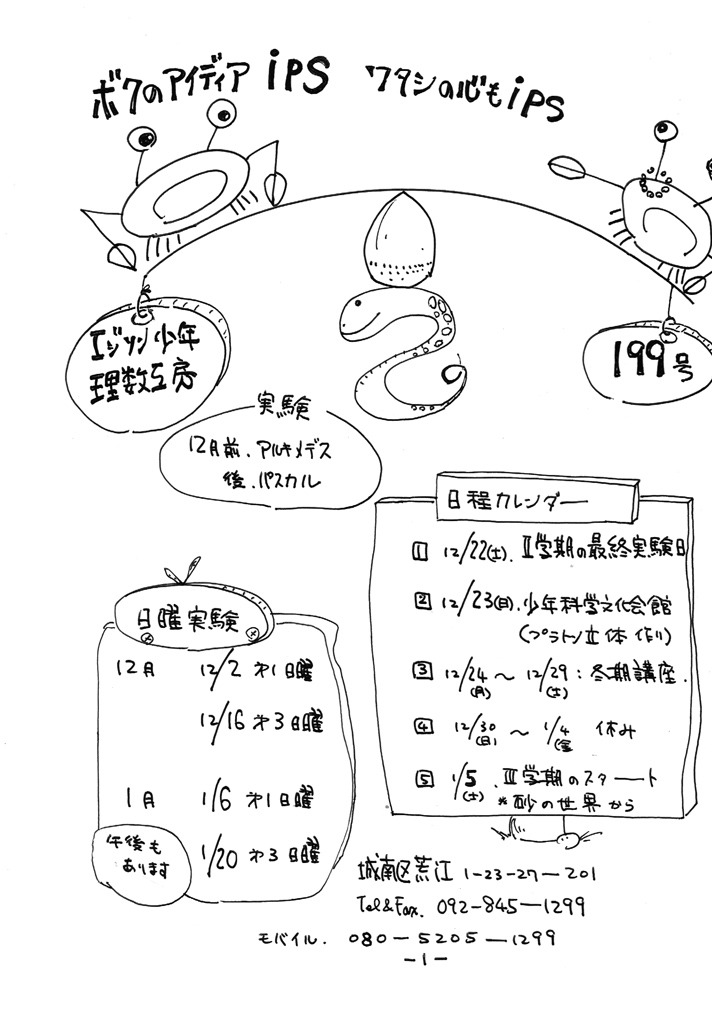 ボクのアイディア iPS ワタシの心も iPS
エジソン少年
理数工房
199号
実験
12月前、アルキメデス
後、パスカル
日程カレンダー
1 12/22(土)、Ⅱ学期の最終実験日
2 12/23(日)、少年科学文化会館
(プラトン立体作り)
3 12/24(月) ~ 12/29(土) : 冬期講座.
4 12/30(日) ~ 1/4(金) 休み
5 1/5(土)、Ⅲ学期のスタート
*砂の世界から
日曜実験
12月 12/2 オ1日曜
12/16 オ3日曜
1月 1/6 オ1日曜
1/20 オ3日曜
午後も
あります
城南区荒江 1-23-27-201
Tel&Fax. 092-845-1299
モバイル. 080-5205-1299
-1-